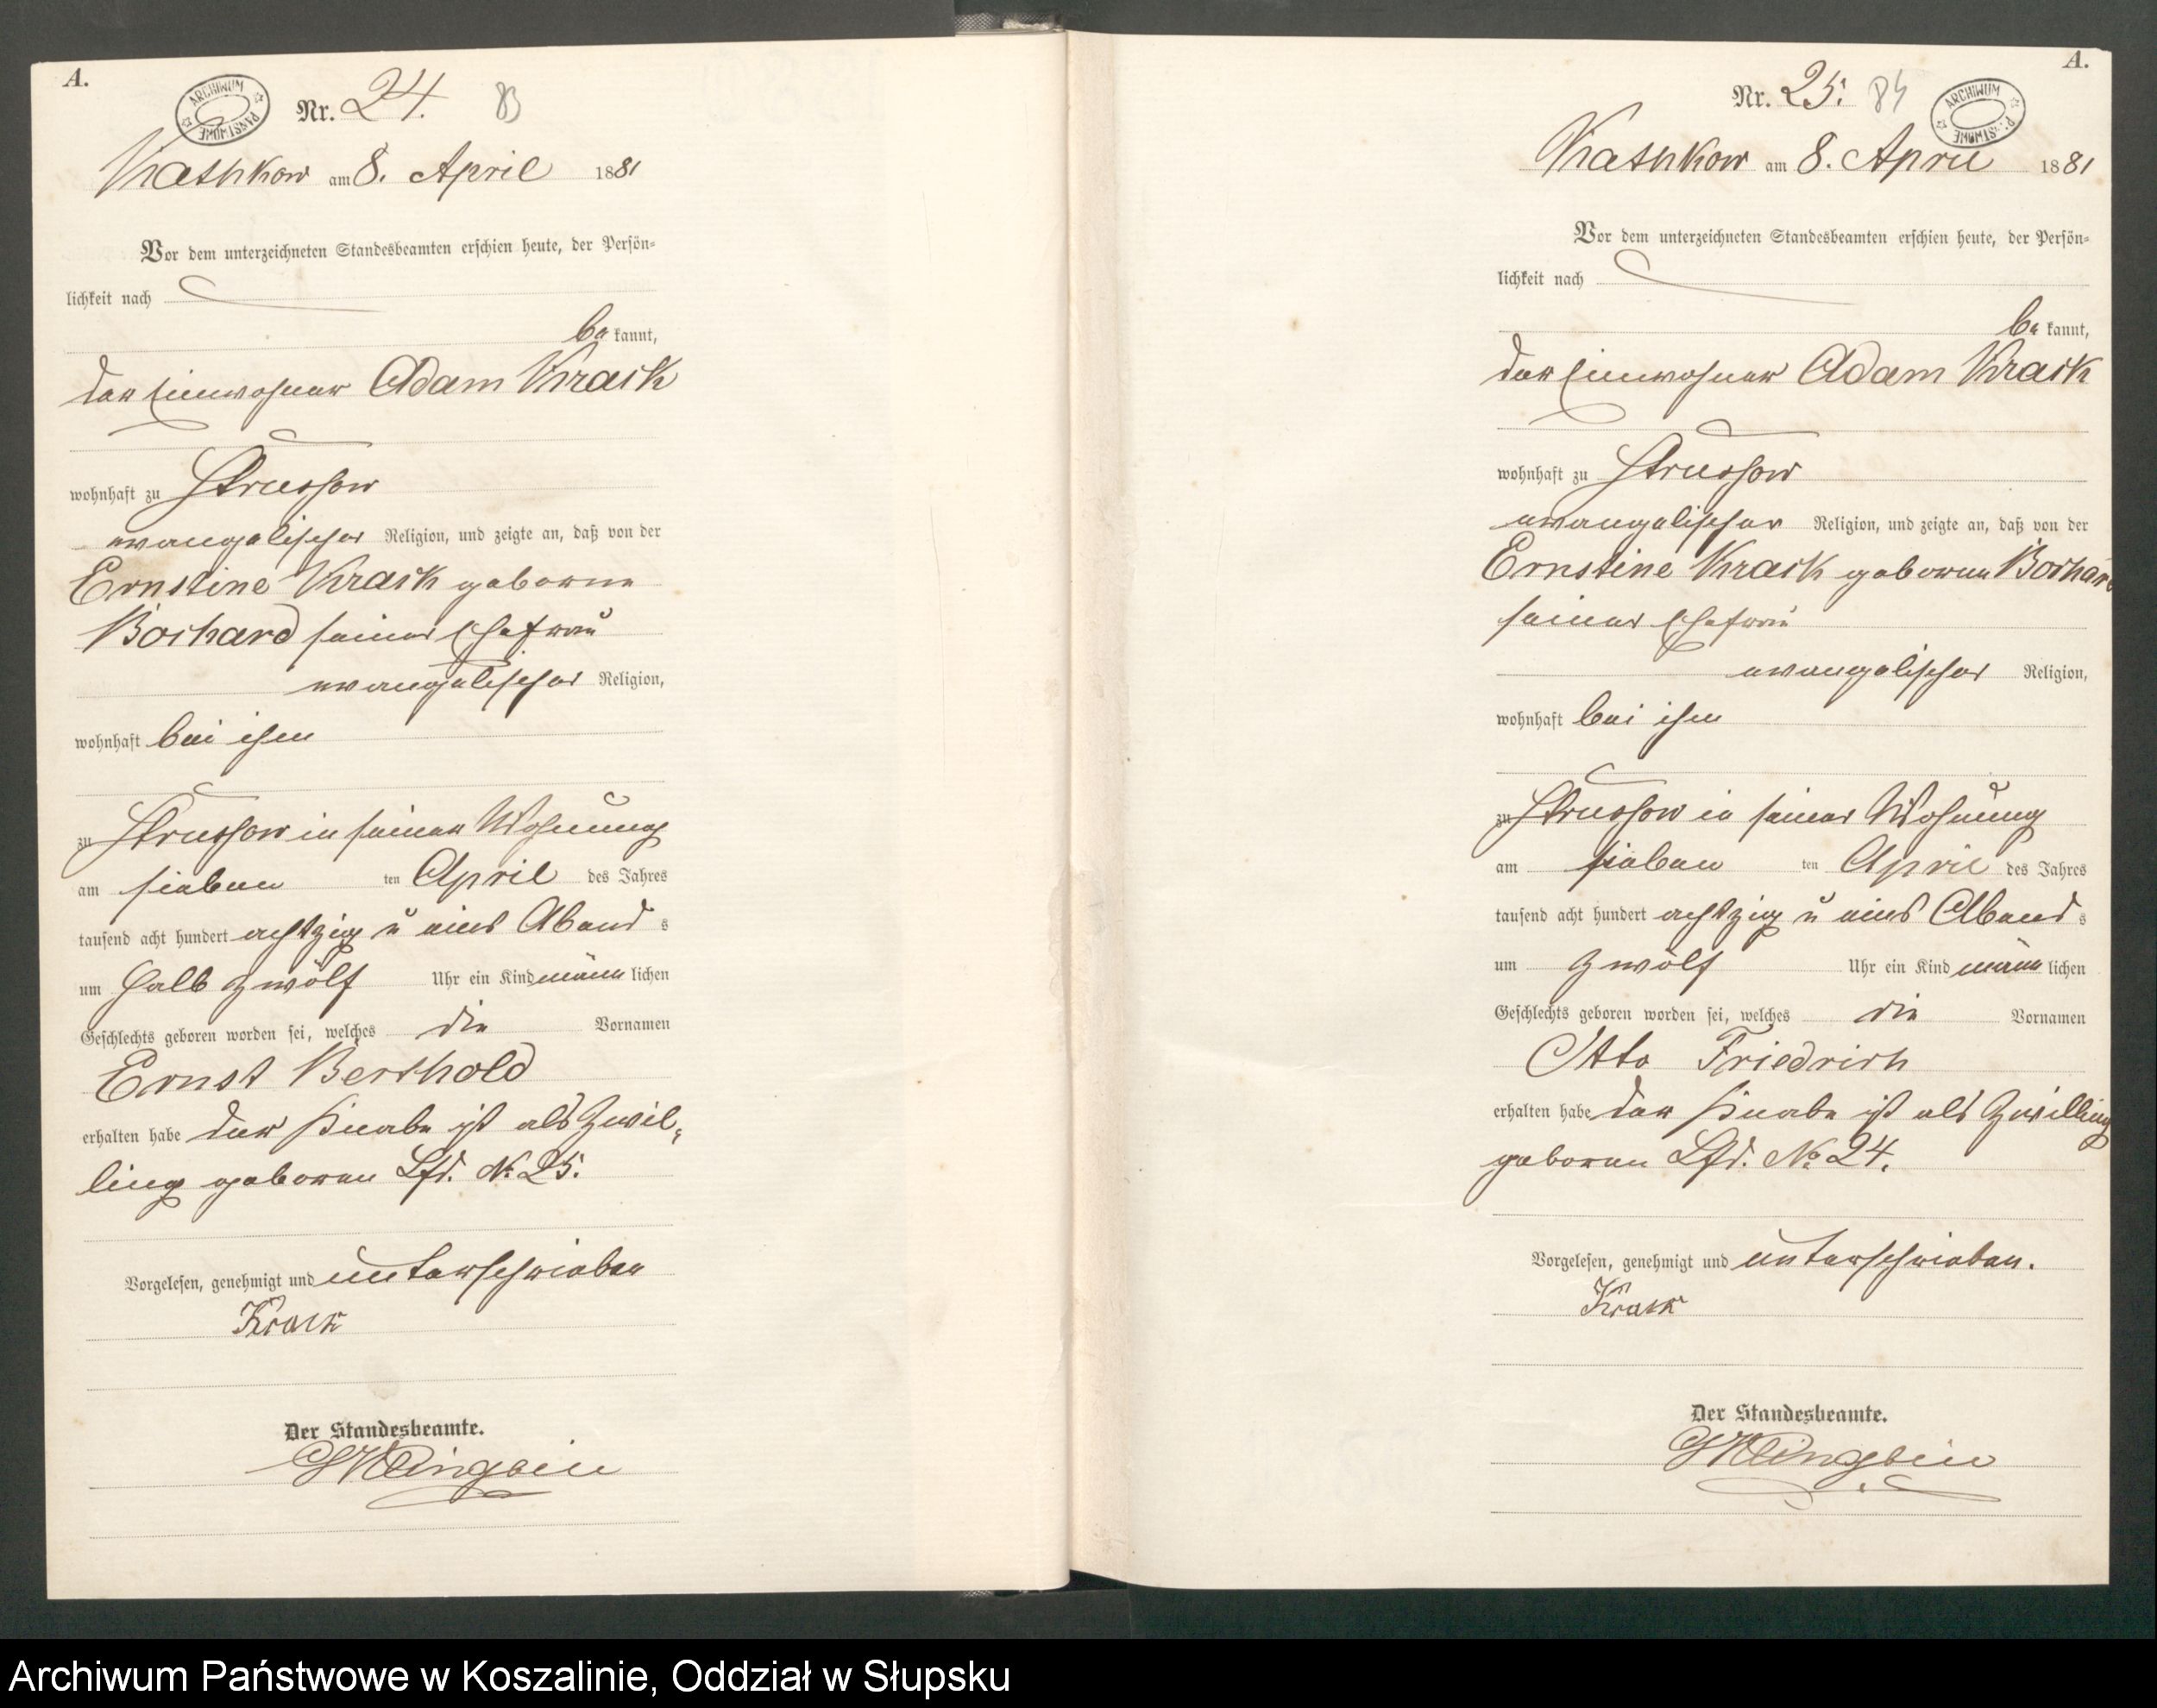 A.
ARCHIWUM PAŃSTWOWE
Nr. 24. 83
am 8. April 1881
Vor dem unterzeichneten Standesbeamten erschien heute, der Persön=
lichkeit nach
be kannt,
der Einwohner Adam Krack
wohnhaft zu Strussow
evangelischer Religion, und zeigte an, daß von der
Ernstine Krack geborene
Borchard seiner Ehefrau
evangelischer Religion,
wohnhaft bei ihm
zu Strussow in seiner Wohnung
am sieben ten April des Jahres
tausend acht hundert achtzig u eins Abend s
um halb zwölf Uhr ein Kind männ lichen
Geschlechts geboren worden sei, welches die Vornamen
Ernst Berthold
erhalten habe der Knabe ist als Zwil=
ling geboren Lfd. No 25.
Vorgelesen, genehmigt und unterschrieben
Krack
Der Standesbeamte.
A.
Nr. 25. 84
ARCHIWUM PAŃSTWOWE
am 8. April 1881
Vor dem unterzeichneten Standesbeamten erschien heute, der Persön=
lichkeit nach
be kannt,
der Einwohner Adam Krack
wohnhaft zu Strussow
evangelischer Religion, und zeigte an, daß von der
Ernstine Krack geborene Borchard
seiner Ehefrau
evangelischer Religion,
wohnhaft bei ihm
zu Strussow in seiner Wohnung
am sieben ten April des Jahres
tausend acht hundert achtzig u eins Abend s
um zwölf Uhr ein Kind männ lichen
Geschlechts geboren worden sei, welches die Vornamen
Otto Friedrich
erhalten habe der Knabe ist als Zwilling
geboren Lfd. No 24.
Vorgelesen, genehmigt und unterschrieben.
Krack
Der Standesbeamte.
Archiwum Państwowe w Koszalinie, Oddział w Słupsku